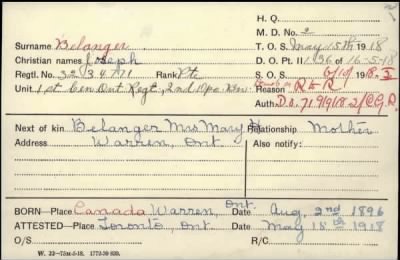 H. Q.
M. D. No. 2
Surname Belanger T. O. S. May 15th 1918
Christian names Joseph D. O. Pt. II 136 of 16-5-18
Regtl. No. 3234771 Rank Pte S. O. S. 1918
Unit 1st Cen Ont Regt, 2nd Reason
Auth. D.O.
Next of kin Belanger Mrs Mary Relationship Mother
Address Warren, Ont Also notify:
BORN—Place Canada Warren, Ont. Date Aug. 2nd 1896
ATTESTED—Place Toronto Ont Date May 18th 1918
O/S R/C